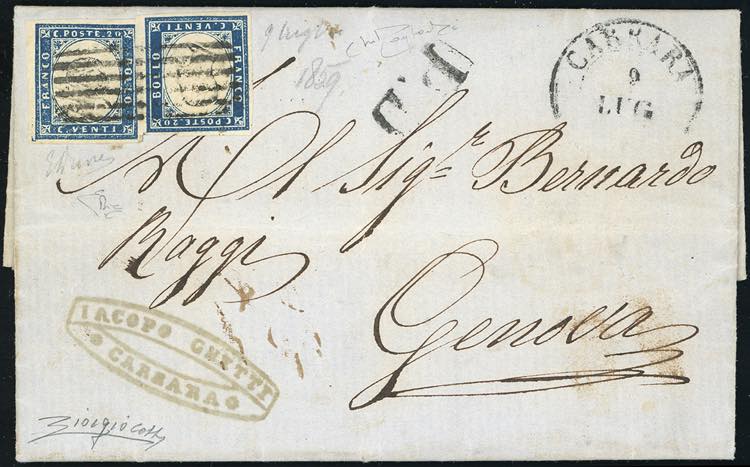 C. POSTE. 20
FRANCO
BOLLO
C. VENTI
C. VENTI
BOLLO
FRANCO
C. POSTE. 20
9 luglio
1859
P.D
CARRARA
9
LUG
Al Sigr. Bernardo
Raggi
Genova
IACOPO GHETTI
CARRARA